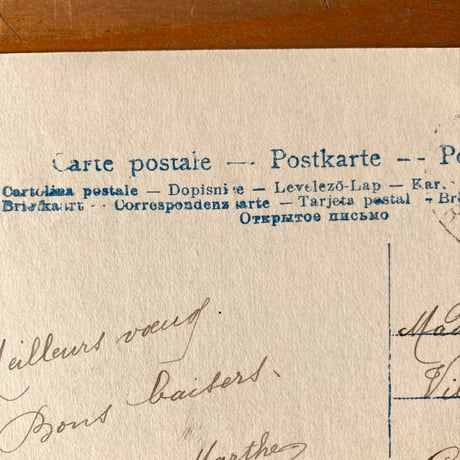 Carte postale — Postkarte -- Po
Cartolina postale — Dopisnice — Levelező-Lap — Kar
Briefkaart -- Correspondenzkarte — Tarjeta postal - Br
Открытое письмо
Meilleurs vœux.
Mad
Bons baisers.
Vi
Marthe